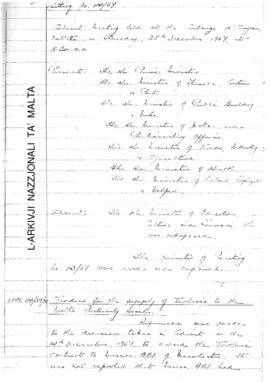 Sitting No. 114/64
Cabinet Meeting held at the Auberge d'Aragon
Valletta on Monday, 28th December 1964, at
11.30 a.m.
Present: The Hon Prime Minister
The Hon Minister of Finance, Customs
& Ports
The Hon Minister of Public Building
& Works
The Hon Minister of Justice and
Parliamentary Affairs
The Hon Minister of Trade, Industry
& Agriculture
The Hon Minister of Health
The Hon Minister of Labour, Employt
& Welfare
Absent: The Hon Minister of Education,
who
was indisposed.
The minutes of Meeting
No 113/64 were read and confirmed.
Tenders for the supply of Turbines to the
Malta Electricity Board.
Reference was made
to the decision taken in Cabinet on the
December, 1964, to award the Turbine
contract to Messrs AEI of Manchester. It
was now reported that Messrs AEI had
L-ARKIVJI NAZZJONALI TA' MALTA